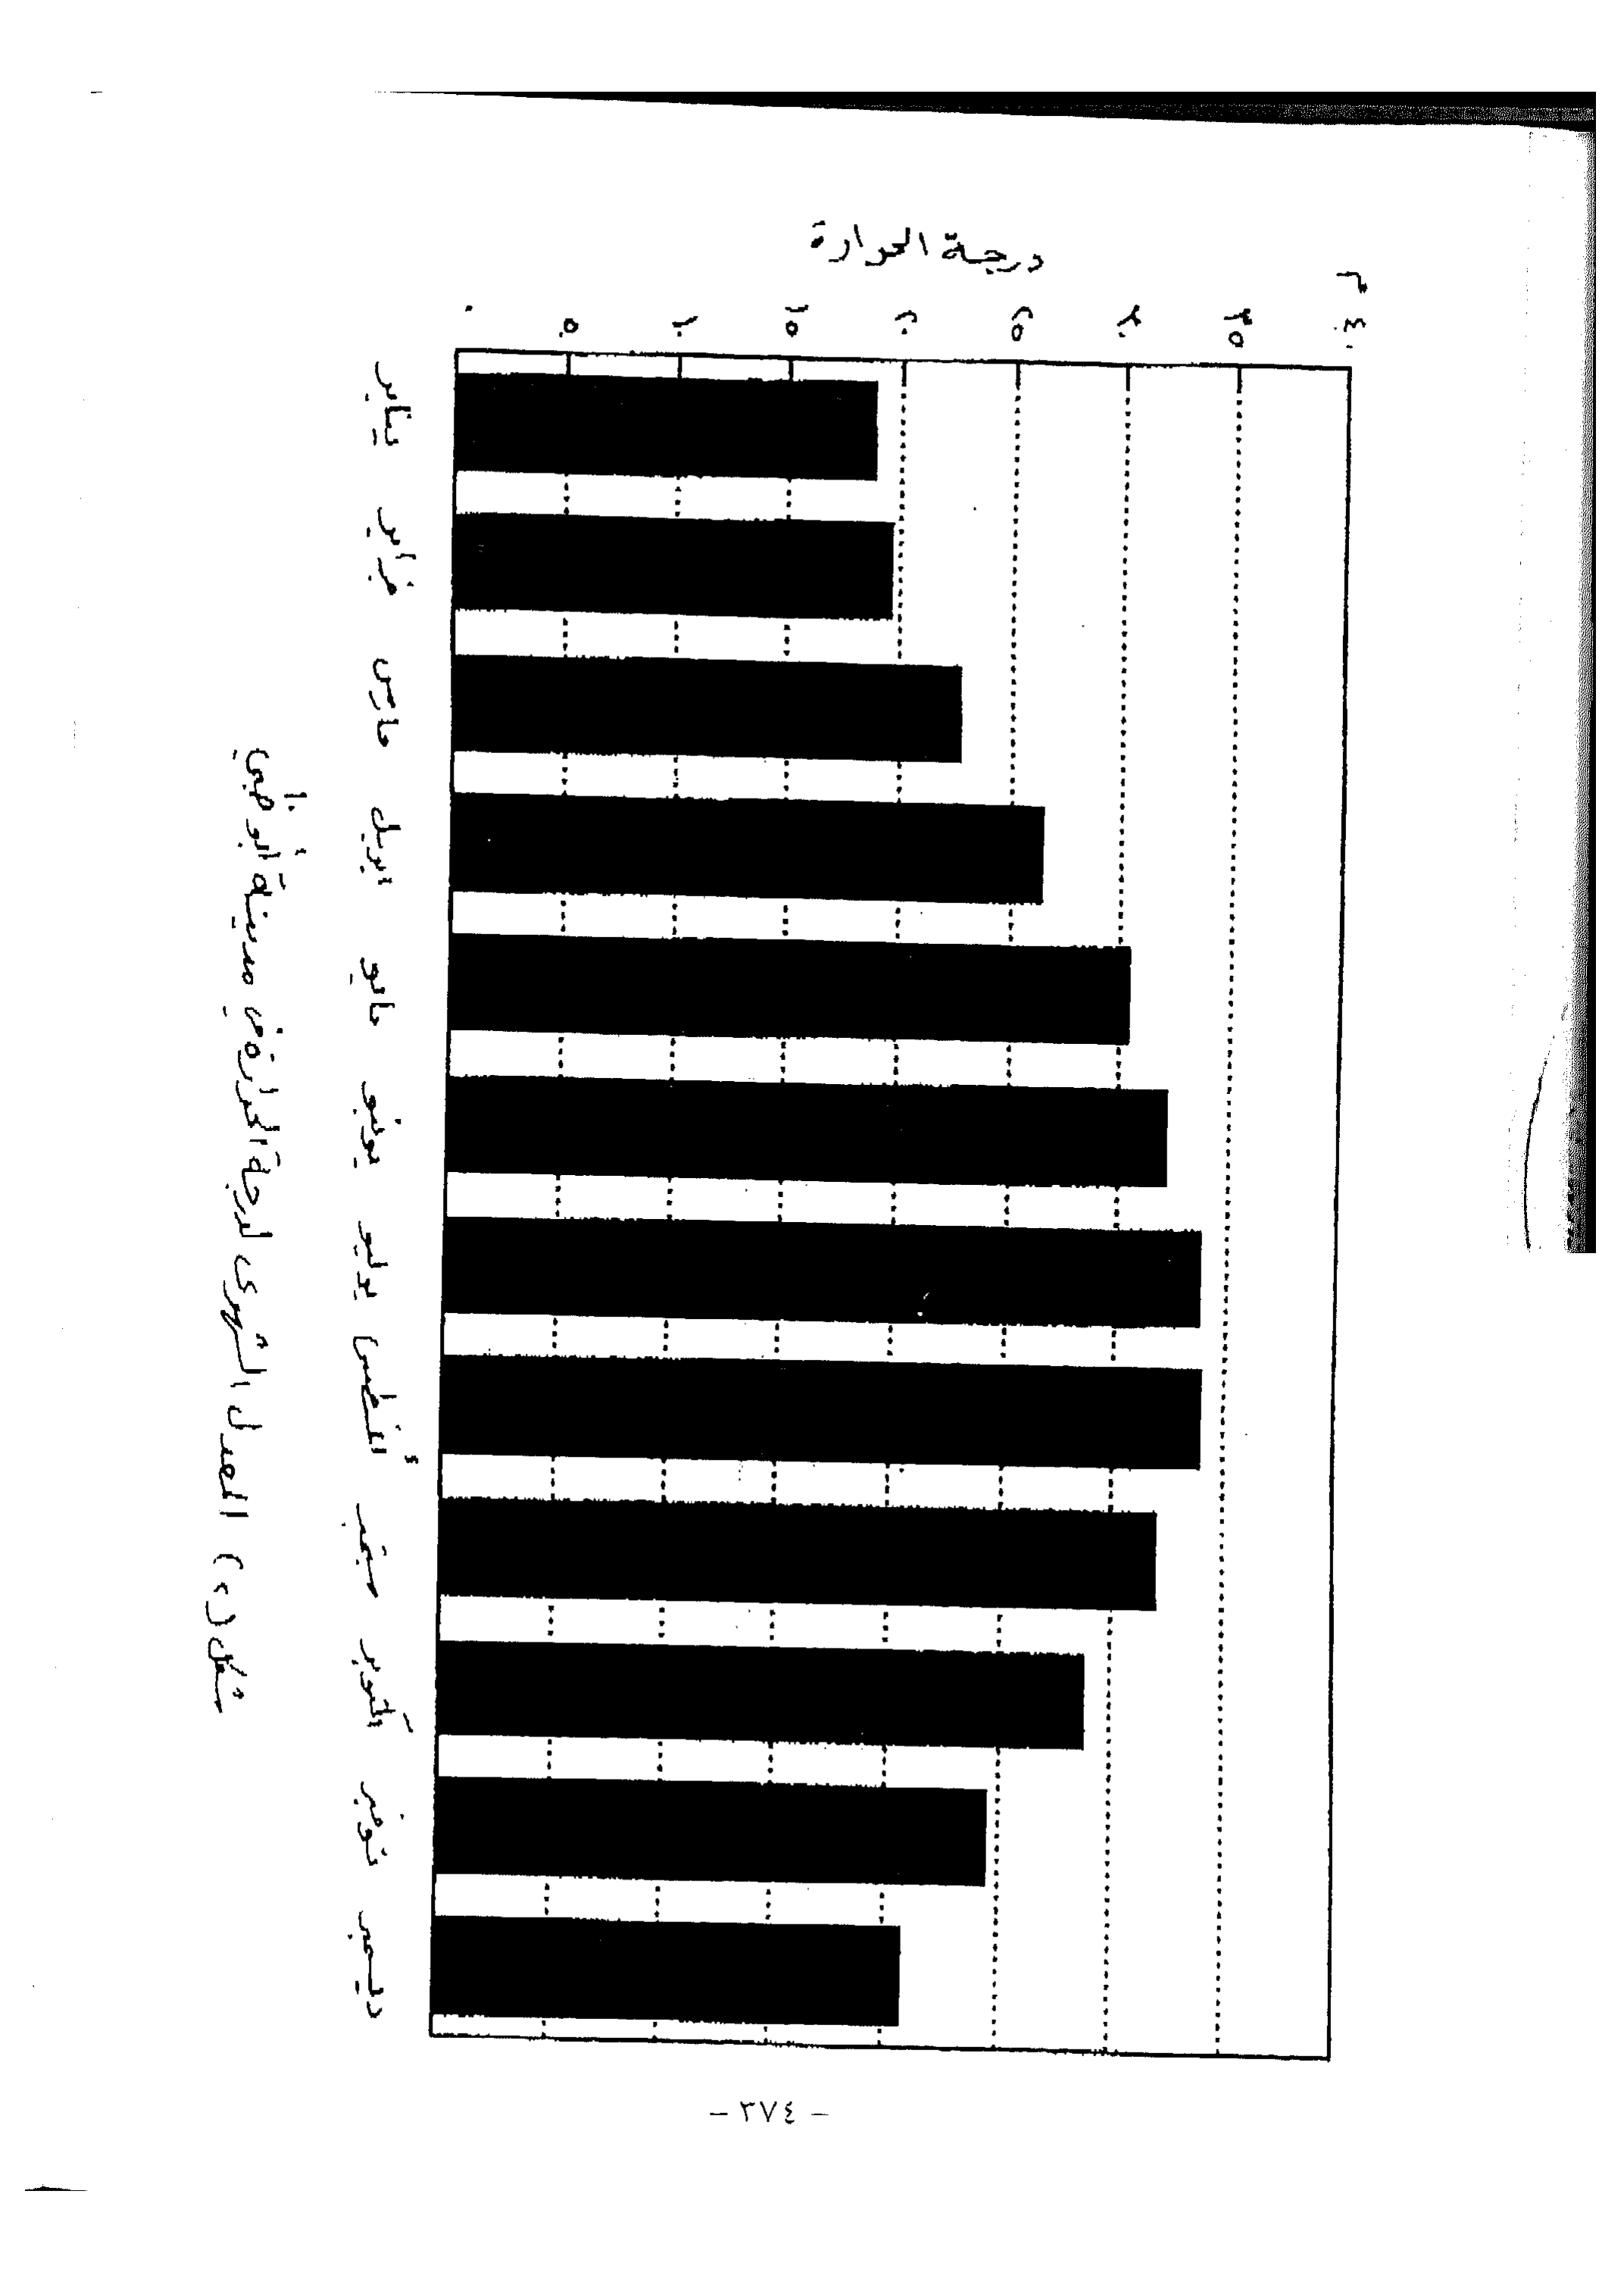 درجة الحرارة
م°
٤٠
٣٥
٣٠
٢٥
٢٠
١٥
١٠
٥
٠
يناير
فبراير
مارس
ابريل
مايو
يونيو
يوليو
أغسطس
سبتمبر
أكتوبر
نوفمبر
ديسمبر
شكل (٢) المعدل الشهرى لدرجة الحرارة في مدينة أبو ظبي
- ٢٧٤ -